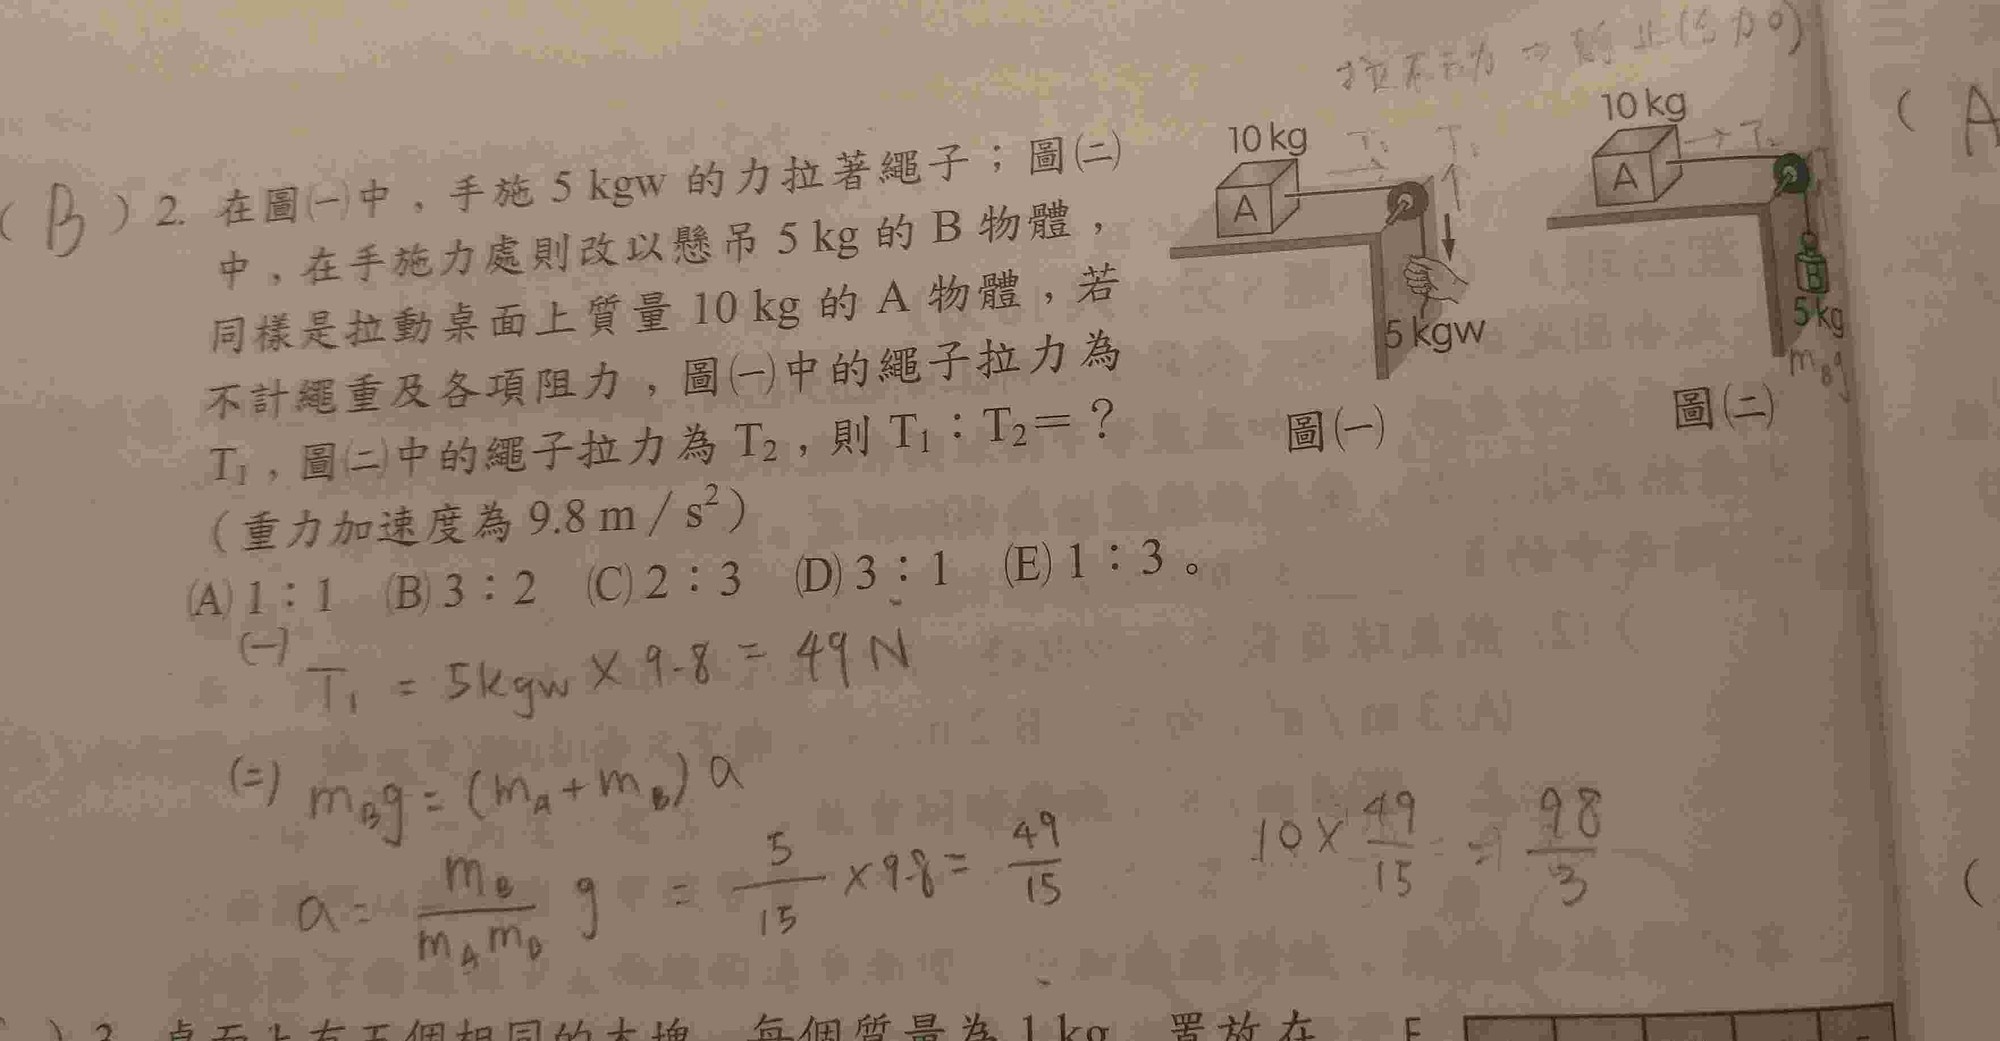 拉不動 ⇒ 靜止(合力0)
(B) 2. 在圖㈠中，手施 5 kgw 的力拉著繩子；圖㈡
中，在手施力處則改以懸吊 5 kg 的 B 物體，
同樣是拉動桌面上質量 10 kg 的 A 物體，若
不計繩重及各項阻力，圖㈠中的繩子拉力為
T₁，圖㈡中的繩子拉力為 T₂，則 T₁：T₂＝？
（重力加速度為 9.8 m／s²）
(A) 1：1 (B) 3：2 (C) 2：3 (D) 3：1 (E) 1：3。
10 kg
A
5 kgw
圖㈠
10 kg
A
B
5 kg
m_B g
圖㈡
(A
(一)
T₁ = 5kgw × 9.8 = 49 N
(二) m_B g = (m_A + m_B) a
a = m_B / m_A m_B g = 5/15 × 9.8 = 49/15
10 × 49/15 ⇒ 98/3
(
) 3. 桌面上有五個相同的木塊，每個質量為 1 kg，置放在
F